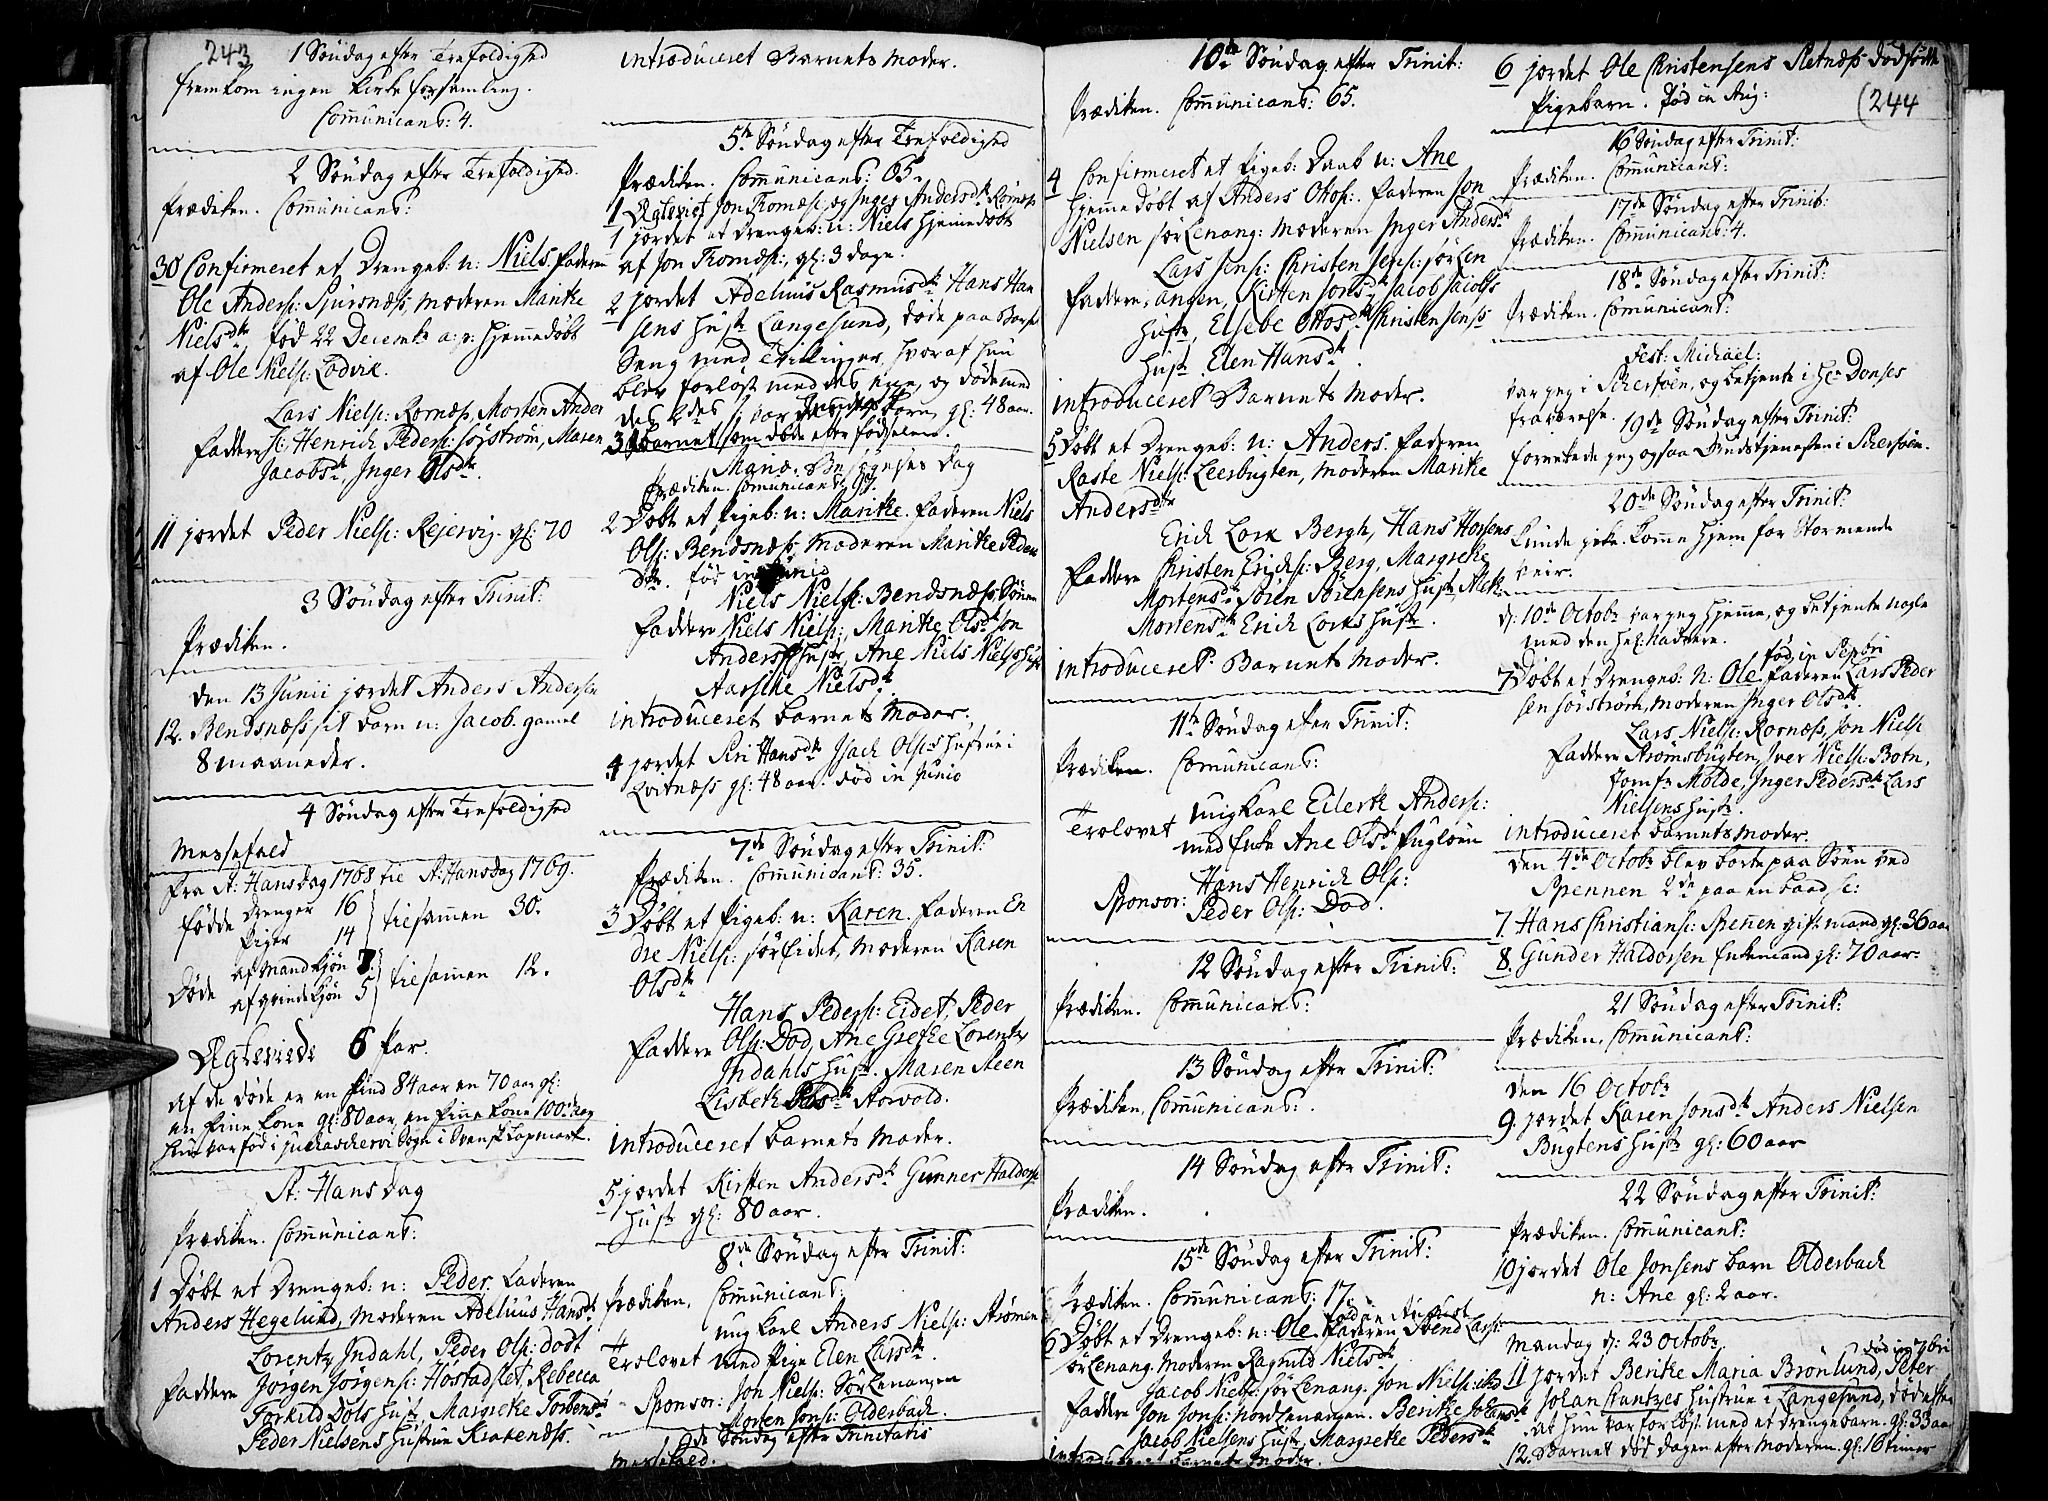 243
1 Søndag efter Trefoldighed
fremkom ingen Kirke forsamling.
Communicant: 4.
2 Søndag efter Trefoldighed.
Prædiken. Communicant:
30 Confirmeret et Drengeb: n: Niels. Faderen
Ole Anders: Spursnæss, Moderen Maritke
Nielsdtr, fød 22 Decembr a: p: hjemmedøbt
af Ole Niels: Lodvik.
Lars Niels: Rornæss, Morten Ander
Faddere s: Henrich Peders: Sørstrøm, Maren
Jacobsdtr, Inger Olsdtr.
11 jordet Peder Niels: Rejervig. gl: 70
3 Søndag efter Trinit:
Prædiken.
den 13 Junii jordet Anders Andersen
12. Bendsnæss sit barn n: Jacob. gamel
8 maaneder.
4 Søndag efter Trefoldighed
Messefald
Fra St: Hansdag 1768 til St: Hansdag 1769.
fødde Drenger 16
Piger 14 tilsammen 30.
Døde af Mandkjøn 7
af qvindekjøn 5 tilsammen 12.
Ægteviede 6 Par.
af de døde er en Find 84 aar en 70 aar gl:
en Fine kone gl: 80 aar, en Fine kone 100
hun var fød i Juckaschervi Sogn i Svensk Lapmark.
St: Hans dag
Prædiken. Communicant:
1 Døbt et Drengeb: n: Peder. Faderen
Anders Hegelund, Moderen Adeluus Hansdtr
Lorentz Indahl, Peder Ols: Dodt
Faddere Jørgen Jørgens: Høstadslet, Rebecca
Torkild Dols Hustr, Margretke Torbensdtr
Peder Nielsens Hustrue Krakenæss.
introduceret Barnets Moder.
5te Søndag efter Trefoldighed
Prædiken. Communicant: 65.
1 Ægteviet Jon Thomæs: og Inger Andersdtr Rornæss
1 jordet et Drengeb: n: Niels hjemmedøbt
af Jon Thomæs:, gl: 3 dage.
2 jordet Adeluus Rasmusdtr Hans Han
sens Hustr Langesund, døde paa Barsel
Seng med Tvillinger, hvoraf hun
blev forløst med det ene, og døde med
det 2det barn, gl: 48 aar.
3 barnet som døde efter fødselen.
Mariæ Besøgelses Dag
Prædiken. Communicant: 97.
2 Døbt et Pigeb: n: Maritke. Faderen Niels
Ols: Bendsnæss, Moderen Maritke Peders
dtr. fød in Junio
Niels Niels: Bendsnæss
Faddere Niels Niels:, Maritke Olsdtr Jon
Anders Hustr, Ane Niels Niels: Hustr
Aarstke Nielsdtr
introduceret barnets Moder.
4 jordet Siri Hansdtr Isach Ols: Hustrue i
Qvitnæss gl: 48 aar. død in Junio
7de Søndag efter Trinit:
Prædiken. Communicant: 35.
3 Døbt et Pigeb: n: Karen. Faderen En
dre Niels: Sørfidet, Moderen Karen
Olsdtr
Hans Peders: Eidet, Peder
Faddere Ols: Dod, Ane Gretke Lorentz
Indahls Hustr. Maren Steen
Lisbeth Aarvold.
introduceret barnets Moder.
5 jordet Kirsten Andersdtr Gunner Haldors:
Hustr gl: 80 aar.
8de Søndag efter Trinit:
Prædiken. Communicant:
ung karl Anders Niels: Strømen
Trolovet med Pige Elen Larsdtr.
Sponsor: Jon Niels: Sørlenangen
Morten Jons: Olderbach.
9de Søndag efter Trinitatis
Messefald.
10de Søndag efter Trinit:
Prædiken. Communicant: 65.
4 Confirmeret et Pigeb: Daab n: Ane
hjemmedøbt af Anders Ottos: Faderen Jon
Nielsen Sørlenang: Moderen Inger Andersdtr
Lars Jens: Christen Jens: Sørlen
Faddere angen, Kirsten Jonsdtr Jacob Jacobs
Hustr, Elsebe Ottosdtr Christen Jens:
Hustr. Elen Hansdtr.
introduceret Barnets Moder.
5 Døbt et Drengeb: n: Anders. Faderen
Raste Niels: Leerbugten, Moderen Maritke
Andersdtr
Erich Lork Bergh, Hans Horsens
Faddere Christen Erichs: Berg, Margretke
Mortensdtr Sören Sörensens Hustr,
Mortensdtr Erich Lorks Hustr.
introduceret Barnets Moder.
11te Søndag efter Trinit:
Prædiken. Communicant:
ungkarl Eilertk Anders:
Trolovet med Enke Ane Olsdtr Fugløen
Hans Henrich Ols:
Sponsor: Peder Ols: Dod.
12 Søndag efter Trinit:
Prædiken. Communicant:
13 Søndag efter Trinit:
Prædiken. Communicant:
14 Søndag efter Trinit:
Prædiken.
15de Søndag efter Trinit:
Prædiken. Communicant: 17.
fød in August
6 Døbt et Drengeb: n: Ole. Faderen Svend Lars:
Sørlenang. Moderen Ragnild Nielsdtr
Jacob Niels: Sørlenang. Jon Niels: ibid
Faddere Jon Jons: Nordlenangen. Bentke Hansdtr
Jacob Nielsens Hustr, Margretke Pedersdtr
introduceret barnets Moder.
6 jordet Ole Christensens Sletnæss dødfødt
Pigebarn. død in Aug:
(244
16 Søndag efter Trinit:
Prædiken. Communicant:
17de Søndag efter Trinit:
Prædiken. Communicant: 4.
18de Søndag efter Trinit:
Prædiken. Communicant:
Fest: Michael:
var jeg i Schersøen, og betjente i Hr Donses
fraværelse.
19de Søndag efter Trinit:
forrettede jeg ogsaa Gudstjenesten i Schersøen.
20de Søndag efter Trinit:
kunde jeg ikke komme hjem for Stormende
veir.
d: 10de Octobr var jeg hjemme, og betjente nogle
med den hel: Nadvere.
fød in Septbri
7 Døbt et Drengeb: N: Ole. Faderen Lars Peder
sen Sørstrøm, Moderen Inger Olsdtr
Lars Niels: Rornæss, Jon Niels
Faddere Strømsbugten, Iver Niels: Botn,
Jomfr Molde, Inger Pedersdtr Lars
Nielsens Hustr.
introduceret barnets Moder.
den 4de Octobr blev borte paa Søen ved
Spennen 2de paa en baad, s:
7. Hans Christians: Spennen gift mand gl: 36 aar
8. Gunder Haldorssen Enkemand gl: 70 aar
21 Søndag efter Trinit:
Prædiken. Communicant:
den 16 Octobr
9. jordet Karen Jonsdtr Anders Nielsen
Bugtens Hustr gl: 60 aar
22 Søndag efter Trinit:
Prædiken. Communicant:
10 jordet Ole Jonsens barn Olderbach
n: Ane gl: 2 aar.
Mandag d: 23 Octobr
død in 7bri
11 jordet Bentke Maria Brønlund, Peter
Johan Hustrue i Langesund, død efter
at hun var forløst med et Drengebarn. gl: 33 aar
12. Barnet død dagen efter Moderen. gl: 16 timer